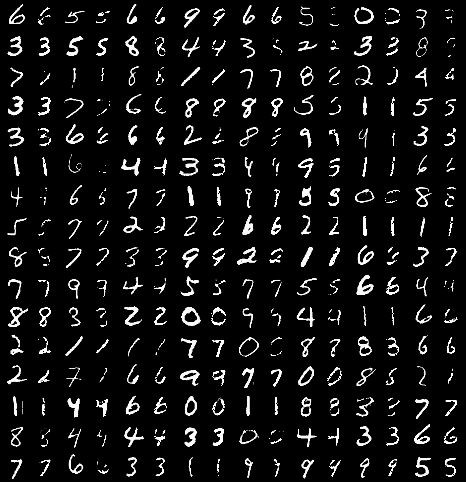 6 6 5 5 6 6 9 9 6 6 5 5 0 0 3 3
3 3 5 5 8 8 4 4 3 2 2 3 3 8
7 7 1 1 8 8 1 1 7 7 8 8 2 2 4 4
3 3 7 7 6 6 8 8 8 8 5 5 1 1 5 5
3 3 6 6 6 6 2 2 8 8 9 9 9 9 3 3
1 1 6 4 4 3 3 9 5 1 1 6 6
4 4 6 6 7 7 1 1 9 9 5 5 0 0 8 8
5 5 9 9 2 2 2 2 6 6 2 2 1 1 1 1
8 8 7 7 3 3 9 9 2 2 1 1 6 6 3 3
7 7 9 9 4 4 5 5 7 7 5 5 6 6 4 4
8 8 3 3 2 2 0 0 9 9 4 4 1 1 6 6
2 2 1 1 1 1 7 7 0 0 8 8 8 3 6 6
2 2 7 7 6 6 9 9 7 7 0 0 8 8 2 2
1 1 4 4 6 6 0 0 1 1 8 8 3 3 7 7
8 8 4 4 4 4 3 3 0 0 4 4 3 3 6 6
7 7 6 6 3 3 1 1 9 9 9 9 9 9 5 5